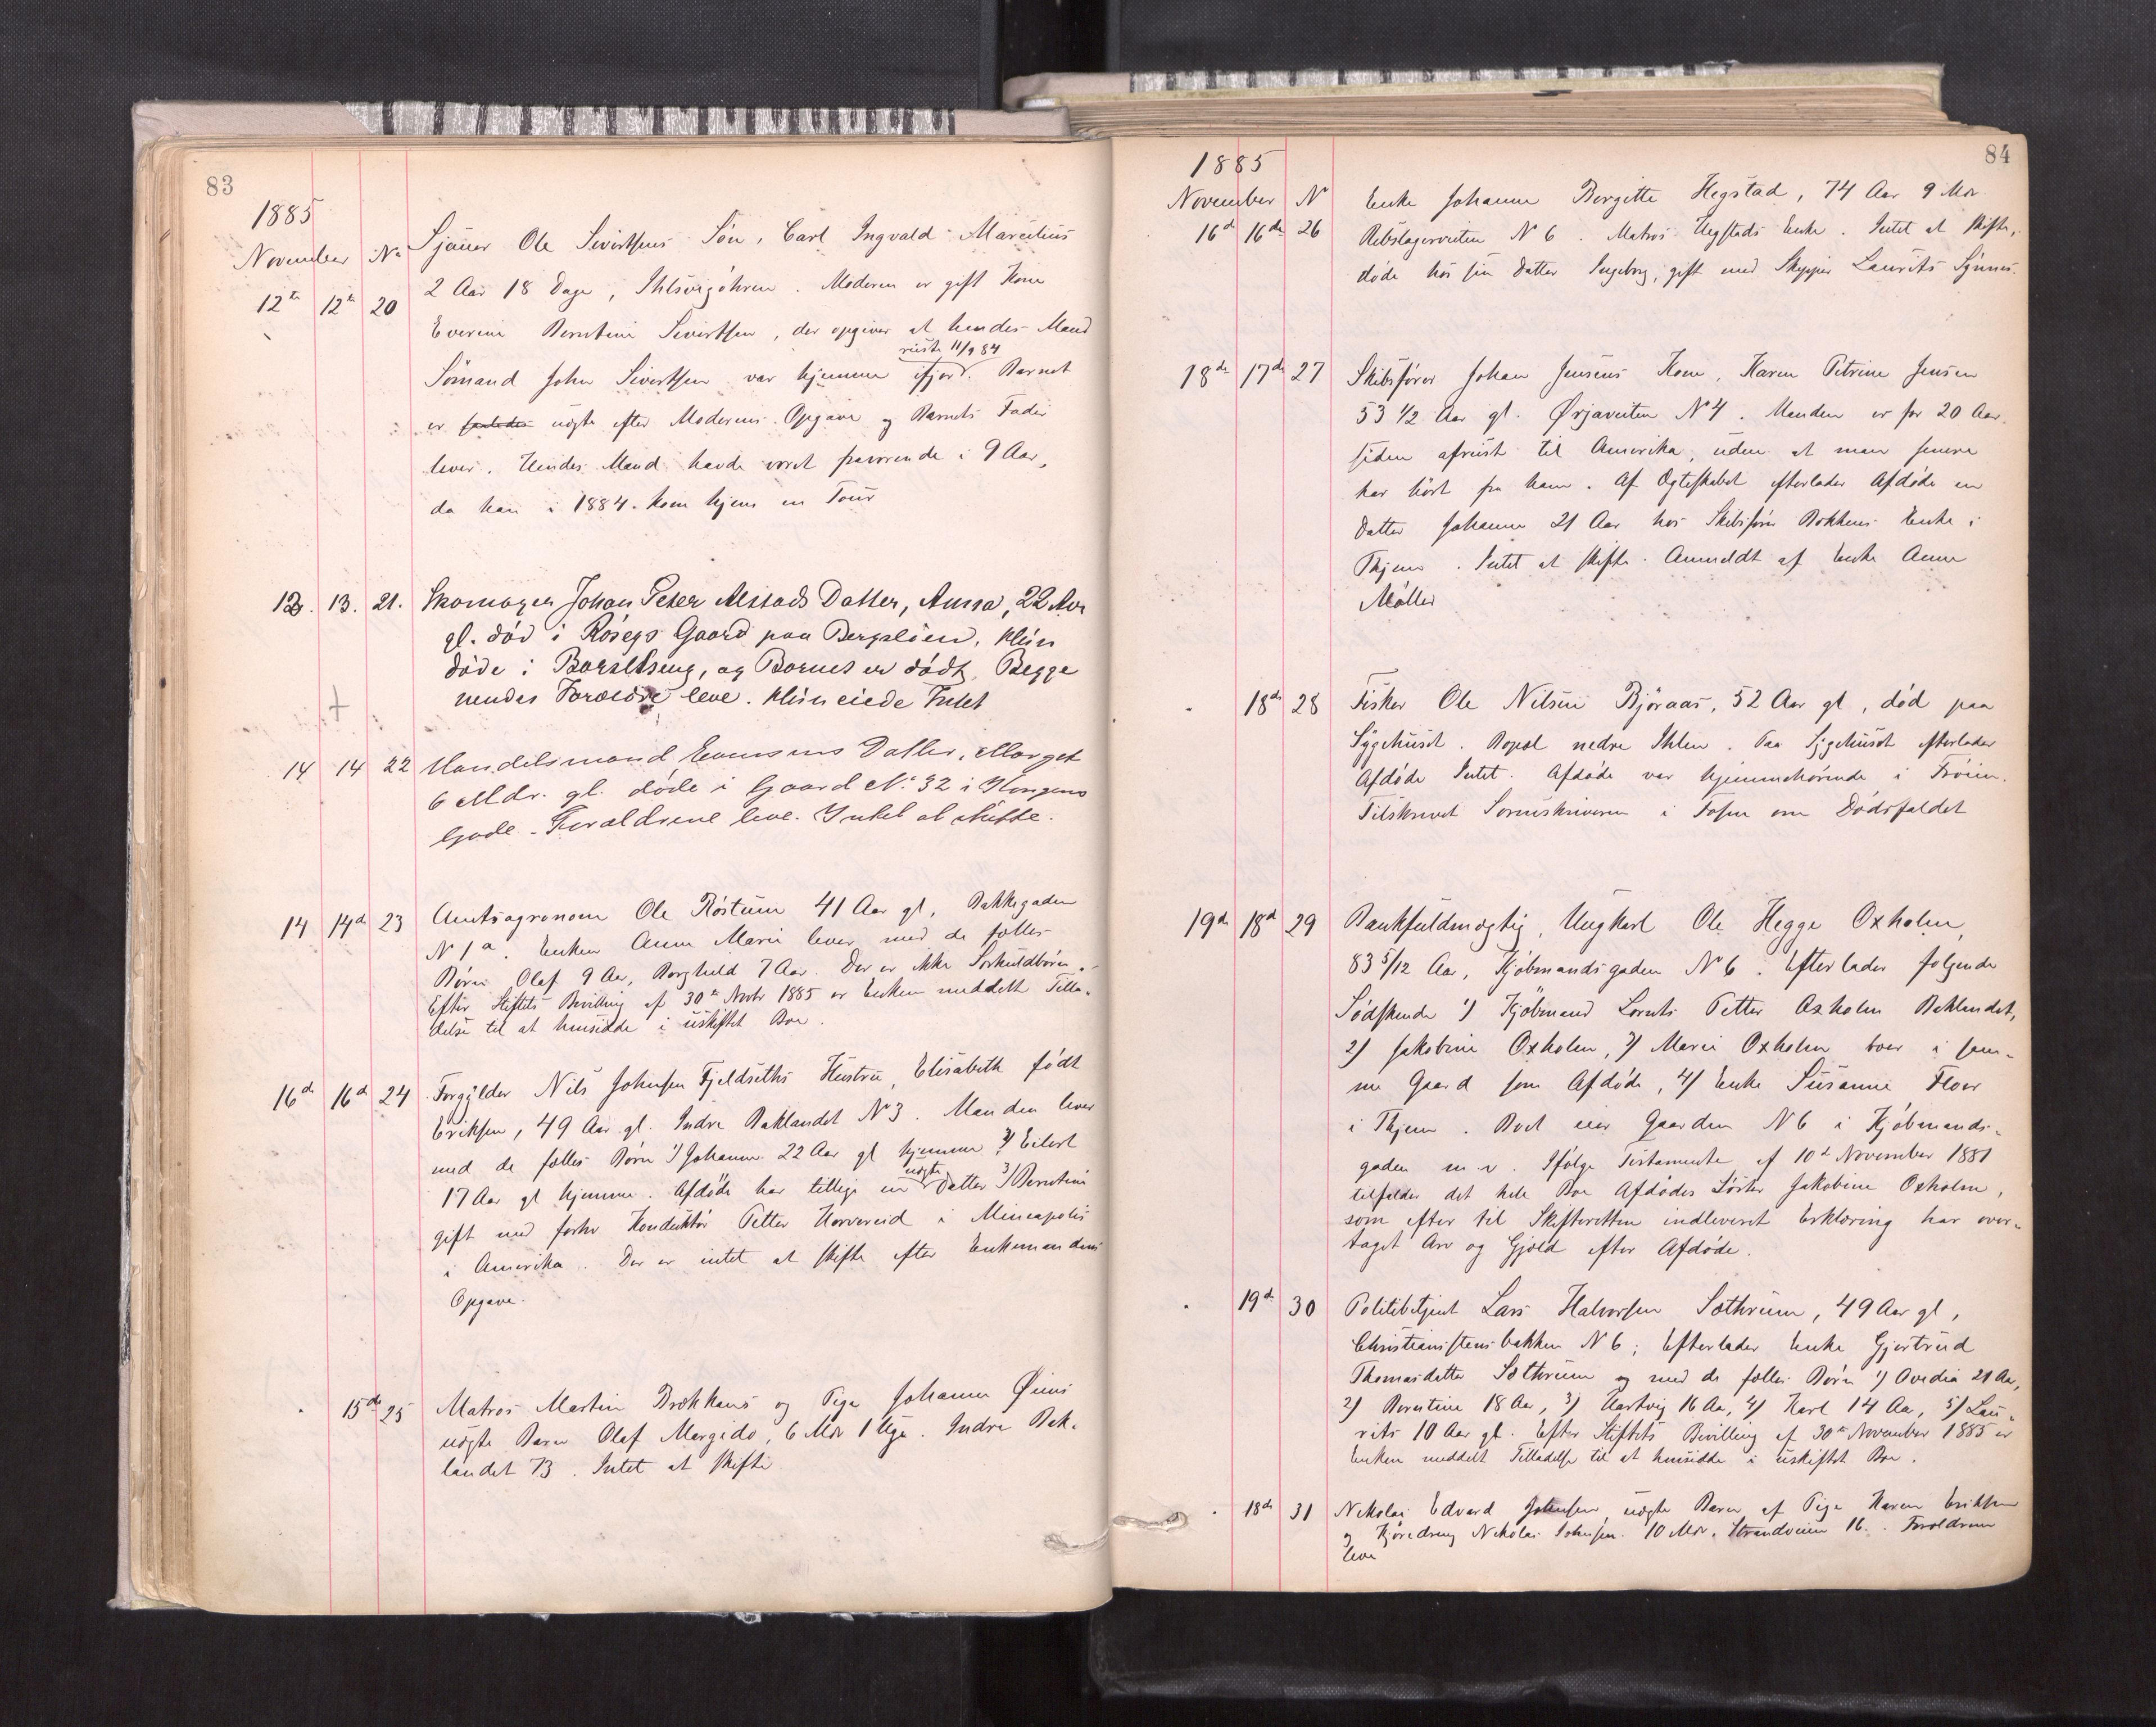 83
1885
November No
12te 12te 20
Sjauer Ole Sivertsens Søn, Carl Ingvald Marcelius
2 Aar 18 Dage, Ihlsvigöhren. Moderen er gift Kone
Everine Berntine Sivertsen, der opgiver at hendes Mand
reiste 11/9 84
Sömand John Sivertsen var hjemme ifjor. Barnet
er saaledes uægte efter Moderens Opgave og Barnets Fader
lever. Hendes Mand havde været fraværende i 9 Aar,
da han i 1884 kom hjem en Tour
12. 13. 21. Skomager Johan Peter Alstads Datter, Anna, 22 Aar
gl. död i Rösegs Gaard paa Bergslien, Hun
döde i Barselseng, og Barnet er dödt, Begge
hendes Forældre leve. Hun eiede Intet
14 14 22 Handelsmand Evensens Datter, Marget
6 Mdr. gl. döde i Gaard No 32 i Kongens
Gade. Forældrene leve. Intet at skifte.
14 14de 23 Amtsagronom Ole Röstum 41 Aar gl, Bakkegaden
N 1a. Enken Anne Marie lever med de fælles
Børn Olaf 9 Aar, Borghild 7 Aar. Der er ikke Særkuldbörn.
Efter Stiftets Bevilling af 30te Novbr 1885 er Enken meddelt Tilla-
delse til at hensidde i uskiftet Boe.
16de 16de 24 Forgylder Nils Johnsen Fjeldseths Hustru, Elisabeth født
Eriksen, 49 Aar gl. Indre Baklandet No 3. Manden lever
med de fælles Børn 1) Johanne 22 Aar gl hjemme 2) Eilert
17 Aar gl hjemme. Afdøde har tillige en uægte Datter 3) Berntine
gift med forhv Konduktör Petter Horvereid i Mineapolis
i Amerika. Der er intet at skifte efter Enkemandens
Opgave.
15de 25 Matros Martin Brækkans og Pige Johanna Øiens
uægte Barn Olaf Margido, 6 Mdr 1 Uge. Indre Bak-
landet 73. Intet at skifte
84
1885
November No
16de 16de 26
Enke Johanne Bergitte Hegstad, 74 Aar 9 Mdr
Rebslagerveiten No 6. Matros Hegstads Enke. Intet at skifte,
døde hos sin Datter Ingeborg, gift med Skipper Laurits Synnes.
18de 17de 27 Skibsfører Johan Jensens Kone, Karen Petrine Jensen
53 1/2 Aar gl. Ørjaveiten No 4. Manden er for 20 Aar
siden afreist til Amerika, uden at man senere
har hört fra ham. Af Ægteskabet efterlader Afdøde en
Datter Johanne 21 Aar hos Skibsfører Bakkens Enke i
Thjem. Intet at skifte. Anmeldt af Enke Anne
Møller
18de 28 Fisker Ole Nilsen Björaas, 52 Aar gl, død paa
Sygehuset. Bopæl nedre Ihlen. Paa Sygehuset efterlader
Afdøde Intet. Afdøde var hjemmehörende i Fröien.
Tilskrevet Sorenskriveren i Fosen om Dødsfaldet
19de 18de 29 Bankfuldmægtig, Ungkarl Ole Hegge Oxholm,
83 5/12 Aar, Kjöbmandsgaden No 6. Efterlader følgende
Sødskende 1) Kjöbmand Lornts Petter Oxholm Baklandet,
2) Jakobine Oxholm, 3) Marie Oxholm boer i sam-
me Gaard som Afdøde, 4) Enke Susanne Floer
i Thjem. Boet eier Gaarden N 6 i Kjöbmands-
gaden m. v. Ifølge Testamente af 10de November 1881
tilfalder det hele Boe Afdødes Søster Jakobine Oxholm,
som efter til Skifteretten indleveret Erklæring har over-
taget Arv og Gjæld efter Afdøde.
19de 30 Politibetjent Lars Halvorsen Sæthrum, 49 Aar gl,
Christianstensbakken N 6; Efterlader Enke Gjertrud
Thomasdatter Sæthrum og med de fælles Børn 1) Ovedia 21 Aar,
2) Berntine 18 Aar, 3) Hartvig 16 Aar, 4) Karl 14 Aar, 5) Lau-
rits 10 Aar gl. Efter Stiftets Bevilling af 30te November 1885 er
Enken meddelt Tilladelse til at hensidde i uskiftet Boe.
18de 31 Nikolai Edvard Johnsen uægte Barn af Pige Karen Eriksen
og Kjøredreng Nikolai Johnsen. 10 Mdr. Strandveien 16. Forældrene
leve